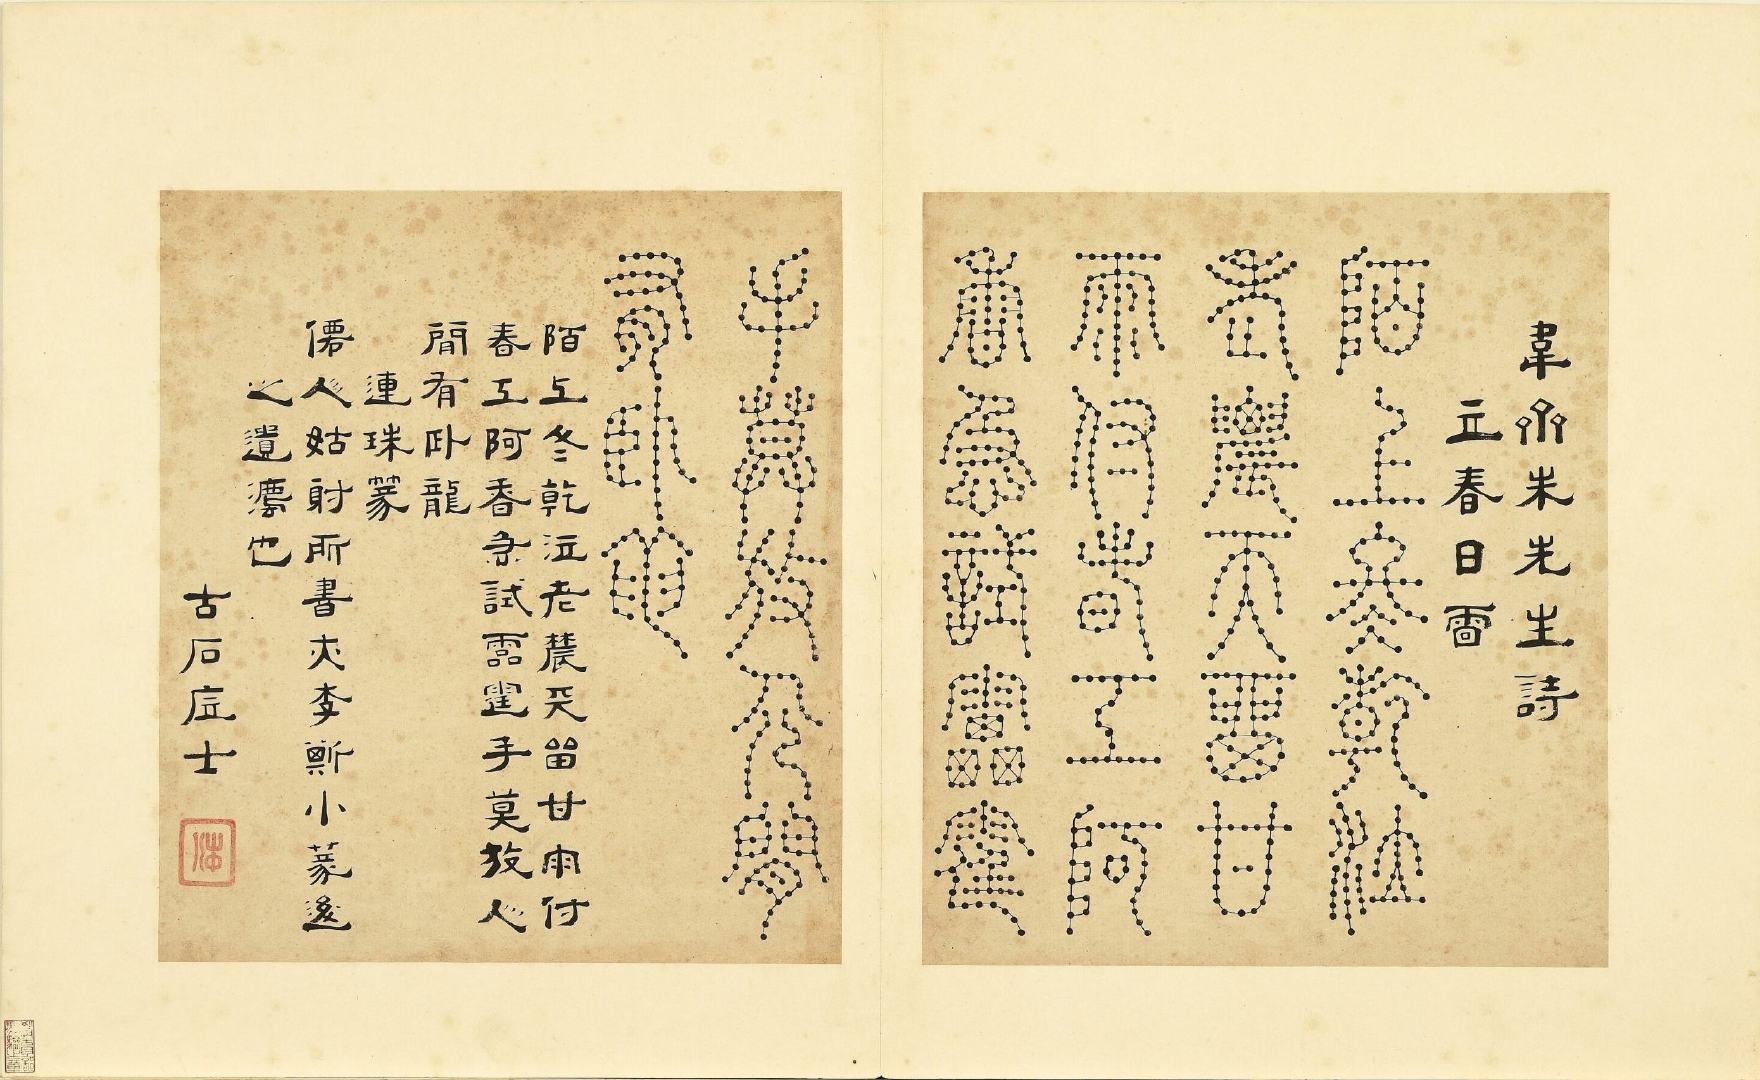 韋齊朱先生詩
立春日雷
陌上冬乾泣
老農天留甘
雨付春工阿
香急試靁霆
手莫放人閒
有臥龍
陌上冬乾泣老農天留甘雨付
春工阿香急試靁霆手莫放人
閒有臥龍
連珠篆
僊人姑射所書亦李斯小篆後
之遺灋也
古石士